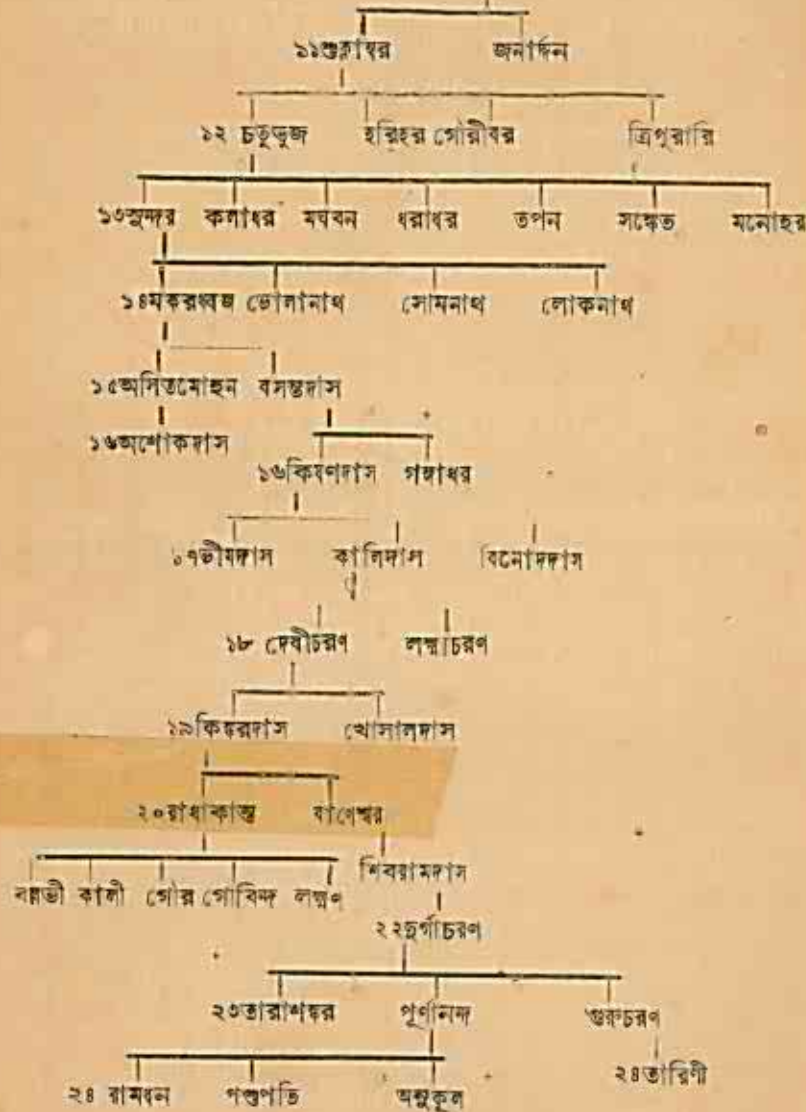 ১১শুক্লাম্বর জনার্দ্দন
১২ চতুর্ভুজ হরিহর গৌরীবর ত্রিপুরারি
১৩সুন্দর কলাধর মঘবন ধরাধর তপন সঙ্কেত মনোহর
১৪মকরধ্বজ ভোলানাথ সোমনাথ লোকনাথ
১৫অসিতমোহন বসন্তদাস
১৬অশোকদাস
১৬কিষণদাস গঙ্গাধর
১৭ভীমদাস কালিদাস বিনোদদাস
১৮ দেবীচরণ লক্ষ্মীচরণ
১৯কিঙ্করদাস খোসালদাস
২০রাধাকান্ত বাণেশ্বর
শিবরামদাস
বল্লভী কালী গৌর গোবিন্দ লক্ষ্মণ
২২দুর্গাচরণ
২৩তারাশঙ্কর পূর্ণানন্দ গুরুচরণ
২৪তারিণী
২৪ রামধন পশুপতি অনুকূল